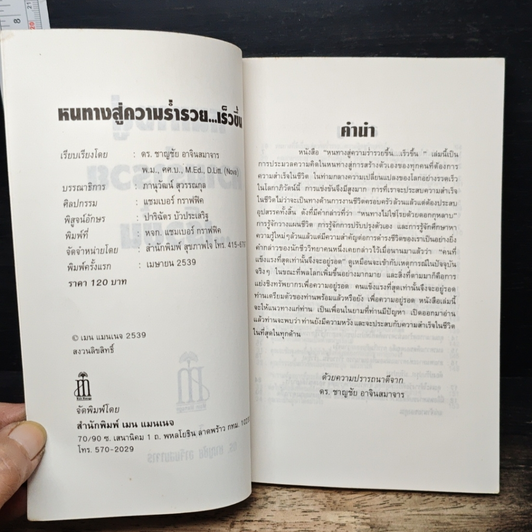 หนทางสู่ความร่ำรวย...เร็วขึ้น
เรียบเรียงโดย : ดร. ชาญชัย อาจินสมาจาร
พ.ม., กศ.บ., M.Ed., D.Litt. (Nova)
บรรณาธิการ : ภานุวัฒน์ สุวรรณกุล
ศิลปกรรม : แชมเบอร์ กราฟฟิค
พิสูจน์อักษร : ปาริฉัตร บัวประเสริฐ
พิมพ์ที่ : หจก. แชมเบอร์ กราฟฟิค
จัดจำหน่ายโดย : สำนักพิมพ์ สุขภาพใจ โทร. 415-
พิมพ์ครั้งแรก : เมษายน 2539
ราคา 120 บาท
© เมน แมนเนจ 2539
สงวนลิขสิทธิ์
จัดพิมพ์โดย
สำนักพิมพ์ เมน แมนเนจ
70/90 ซ. เสนานิคม 1 ถ. พหลโยธิน ลาดพร้าว กทม.
โทร. 570-2029
คำนำ
หนังสือ "หนทางสู่ความร่ำรวยขึ้น...เร็วขึ้น " เล่มนี้เป็น
การประมวลความคิดในหนทางสู่การสร้างตัวเองของทุกคนที่ต้องการ
ความสำเร็จในชีวิต ในท่ามกลางความเปลี่ยนแปลงของโลกอย่างรวดเร็ว
ในโลกาภิวัตน์นี้ การแข่งขันจึงมีสูงมาก การที่เราจะประสบความสำเร็จ
ในชีวิตไม่ว่าจะเป็นทางด้านการงานชีวิตครอบครัว ล้วนแล้วแต่จะต้องประสบ
อุปสรรคทั้งสิ้น ดังที่มีคำกล่าวที่ว่า "หนทางไม่ใช่โรยด้วยดอกกุหลาบ"
การรู้จักวางแผนชีวิต การรู้จักการปรับปรุงตัวเอง และการรู้จักศึกษาหา
ความรู้ใหม่ๆล้วนแล้วแต่มีความสำคัญต่อการดำรงชีวิตของเราเป็นอย่างยิ่ง
ดังคำกล่าวของนักชีววิทยาคนหนึ่งเคยกล่าวไว้เมื่อนานมาแล้วว่า "คนที่
แข็งแรงที่สุดเท่านั้นจึงจะอยู่รอด" ดูเหมือนจะเข้ากับเหตุการณ์ในปัจจุบัน
จริงๆ ในขณะที่พลโลกเพิ่มขึ้นอย่างมากมาย และสิ่งที่ตามมาก็คือการ
แย่งชิงทรัพยากรเพื่อความอยู่รอด คนแข็งแรงที่สุดเท่านั้นจึงจะอยู่รอด
ท่านเตรียมตัวของท่านพร้อมแล้วหรือยัง เพื่อความอยู่รอด หนังสือเล่มนี้
จะให้แนวทางแก่ท่าน เป็นเพื่อนในยามที่ท่านมีปัญหา เปิดออกมาอ่าน
แล้วท่านจะพบว่า ท่านยังมีความหวัง และจะประสบกับความสำเร็จในชีวิต
ในที่สุดในทุกด้าน
ด้วยความปรารถนาดีจาก
ดร. ชาญชัย อาจินสมาจาร